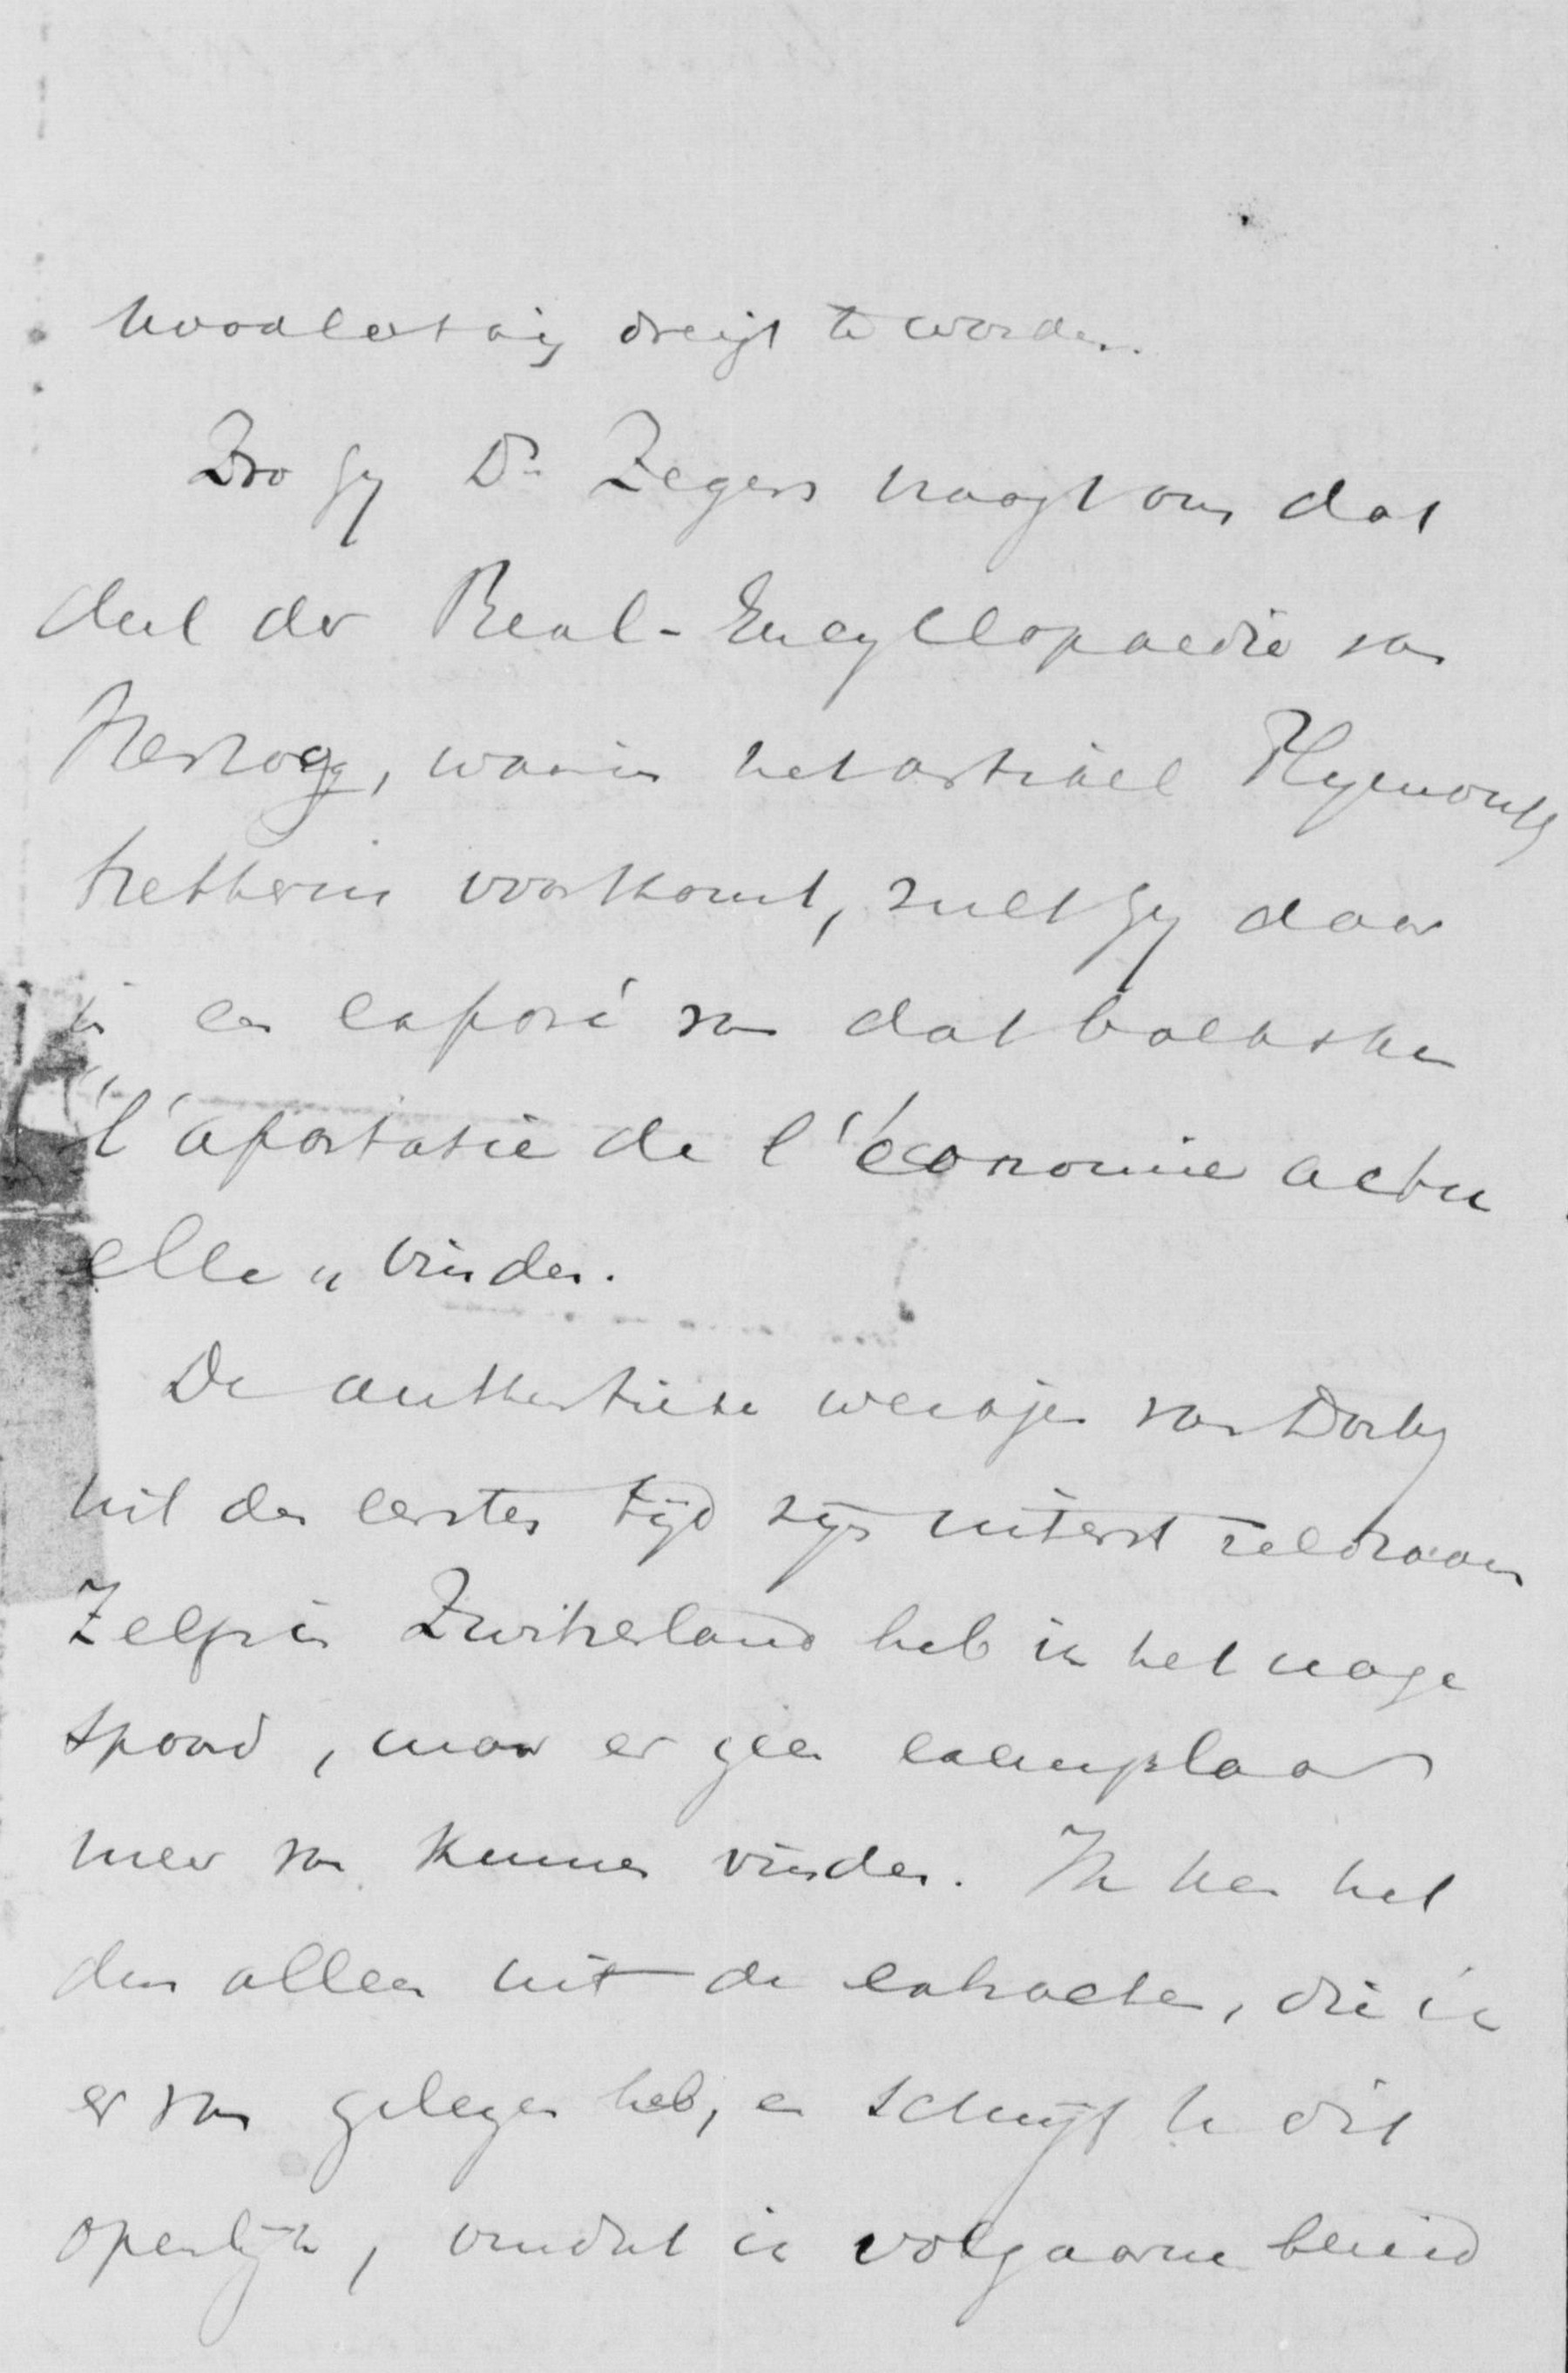 noodlottig dreigt te worden.
Zoo gij Dr Zegers vraagt om dat
deel der Real-Encyclopaedie van
Herzog, waarin het artikel Plymouth
brethern voorkomt, zult gij daar
in een exposé van dat boekske
"l'apostasie de l'économie actu
elle" vinden.
De authentieke werkjes van Darby
uit den eersten tijd zijn uiterst zeldzaam
Zelfs in Zwitserland heb ik het nage
spoord, maar er geen exemplaar
meer van kunnen vinden. Ik ken het
dus alleen uit de extracten, die ik
er van gelezen heb, en schrijf u dit
openlijk, omdat ik volgaarne bereid